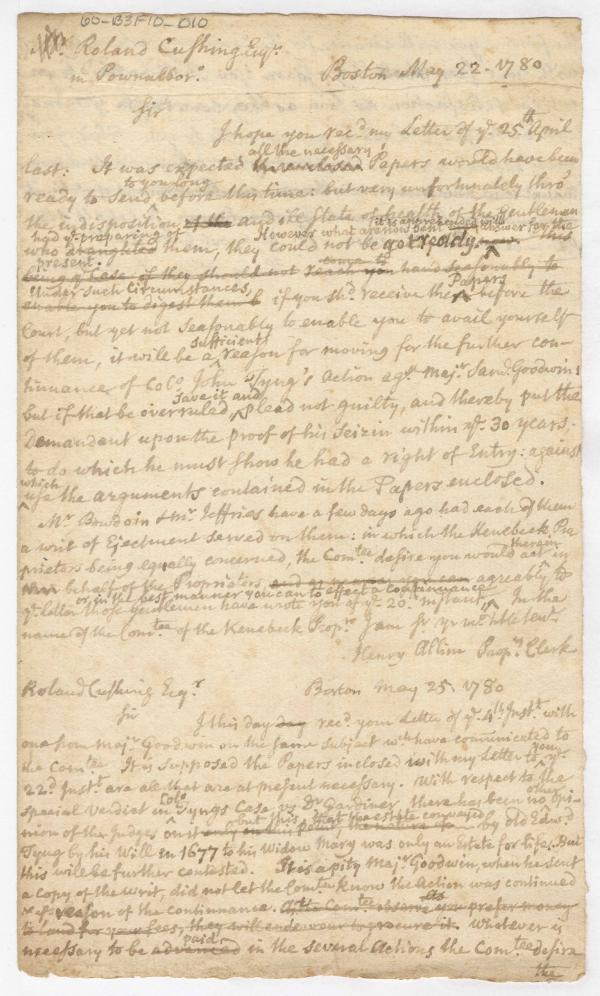 60-B3F10-010
Mr. Roland Cushing Esqr.
in Pownalboro. Boston May 22. 1780
Sir
I hope you recd. my Letter of ye. 25th April
all the necessary
last: It was expected the enclosed Papers would have been
to you long
ready to send before this time: but very unfortunately thro'
the indisposition of the and ill State of health of the Gentleman
had ye. preparing of However what are now sent it is apprehended will answer for the
who them, they could not be got ready now. this
present.
being ye. Case if they should not reach you hand seasonably to
Under such Circumstances, Papers
enable you to digest them if you shd. receive the before the
Court, but yet not Seasonably to enable you to avail yourself
sufficient
of them, it will be a reason for moving for the further con-
tinuance of Colo. John Tyng's Action agst. Majr. Saml. Goodwin:
Save it and
but if that be overruled, plead not guilty, and thereby put the
Demandant upon the proof of his Seizin within ye. 30 years.
to do which he must show he had a right of Entry: against
which
use the arguments contained in the Papers enclosed.
Mr. Bowdoin & Mr. Jeffries have a few days ago had each of them
a writ of Ejectment served on them: in which the Kenebeck Pro
prieters being equally concerned, the Comtee. desire you would act in
therein
behalf of the Proprieters and agreably to
or in the best manner you can to effect a Continuance
ye. letter those gentlemen have wrote you of ye. 20. instant. In the
name of the Comtee. of the Kenebeck Proprs. I am Sr. yr. mt. hble Servt.
Henry Alline Proprs. Clerk
Roland Cushing Esqr. Boston May 25. 1780
Sir
I this day day recd. your Letter of ye. 4th Inst. with
one from Majr. Goodwin on the same Subject wch. have communicated to
the Comtee. It is supposed the Papers inclosed with my Letter to you ye.
22d. Inst. are all that are at present necessary. With respect to the
Colo. other
special verdict in Tyngs Case vs Dr. Gardiner there has been no opi-
but this, that the estate conveyed
nion of the Judges on it only on this point, the nature of by old Edwd.
Tyng by his Will in 1677 to his Widow Mary was only an Estate for life. But
this will be further contested. It is a pity Majr. Goodwin, when he sent
a copy of the writ, did not let the Comtee know the Action was continued
& ye. reason of the continuance. As the Comtee observe you prefer money
to land for your fees, they will endeavour to procure it. Whatever is
paid
necessary to be advanced in the several Actions the Comtee desire
the